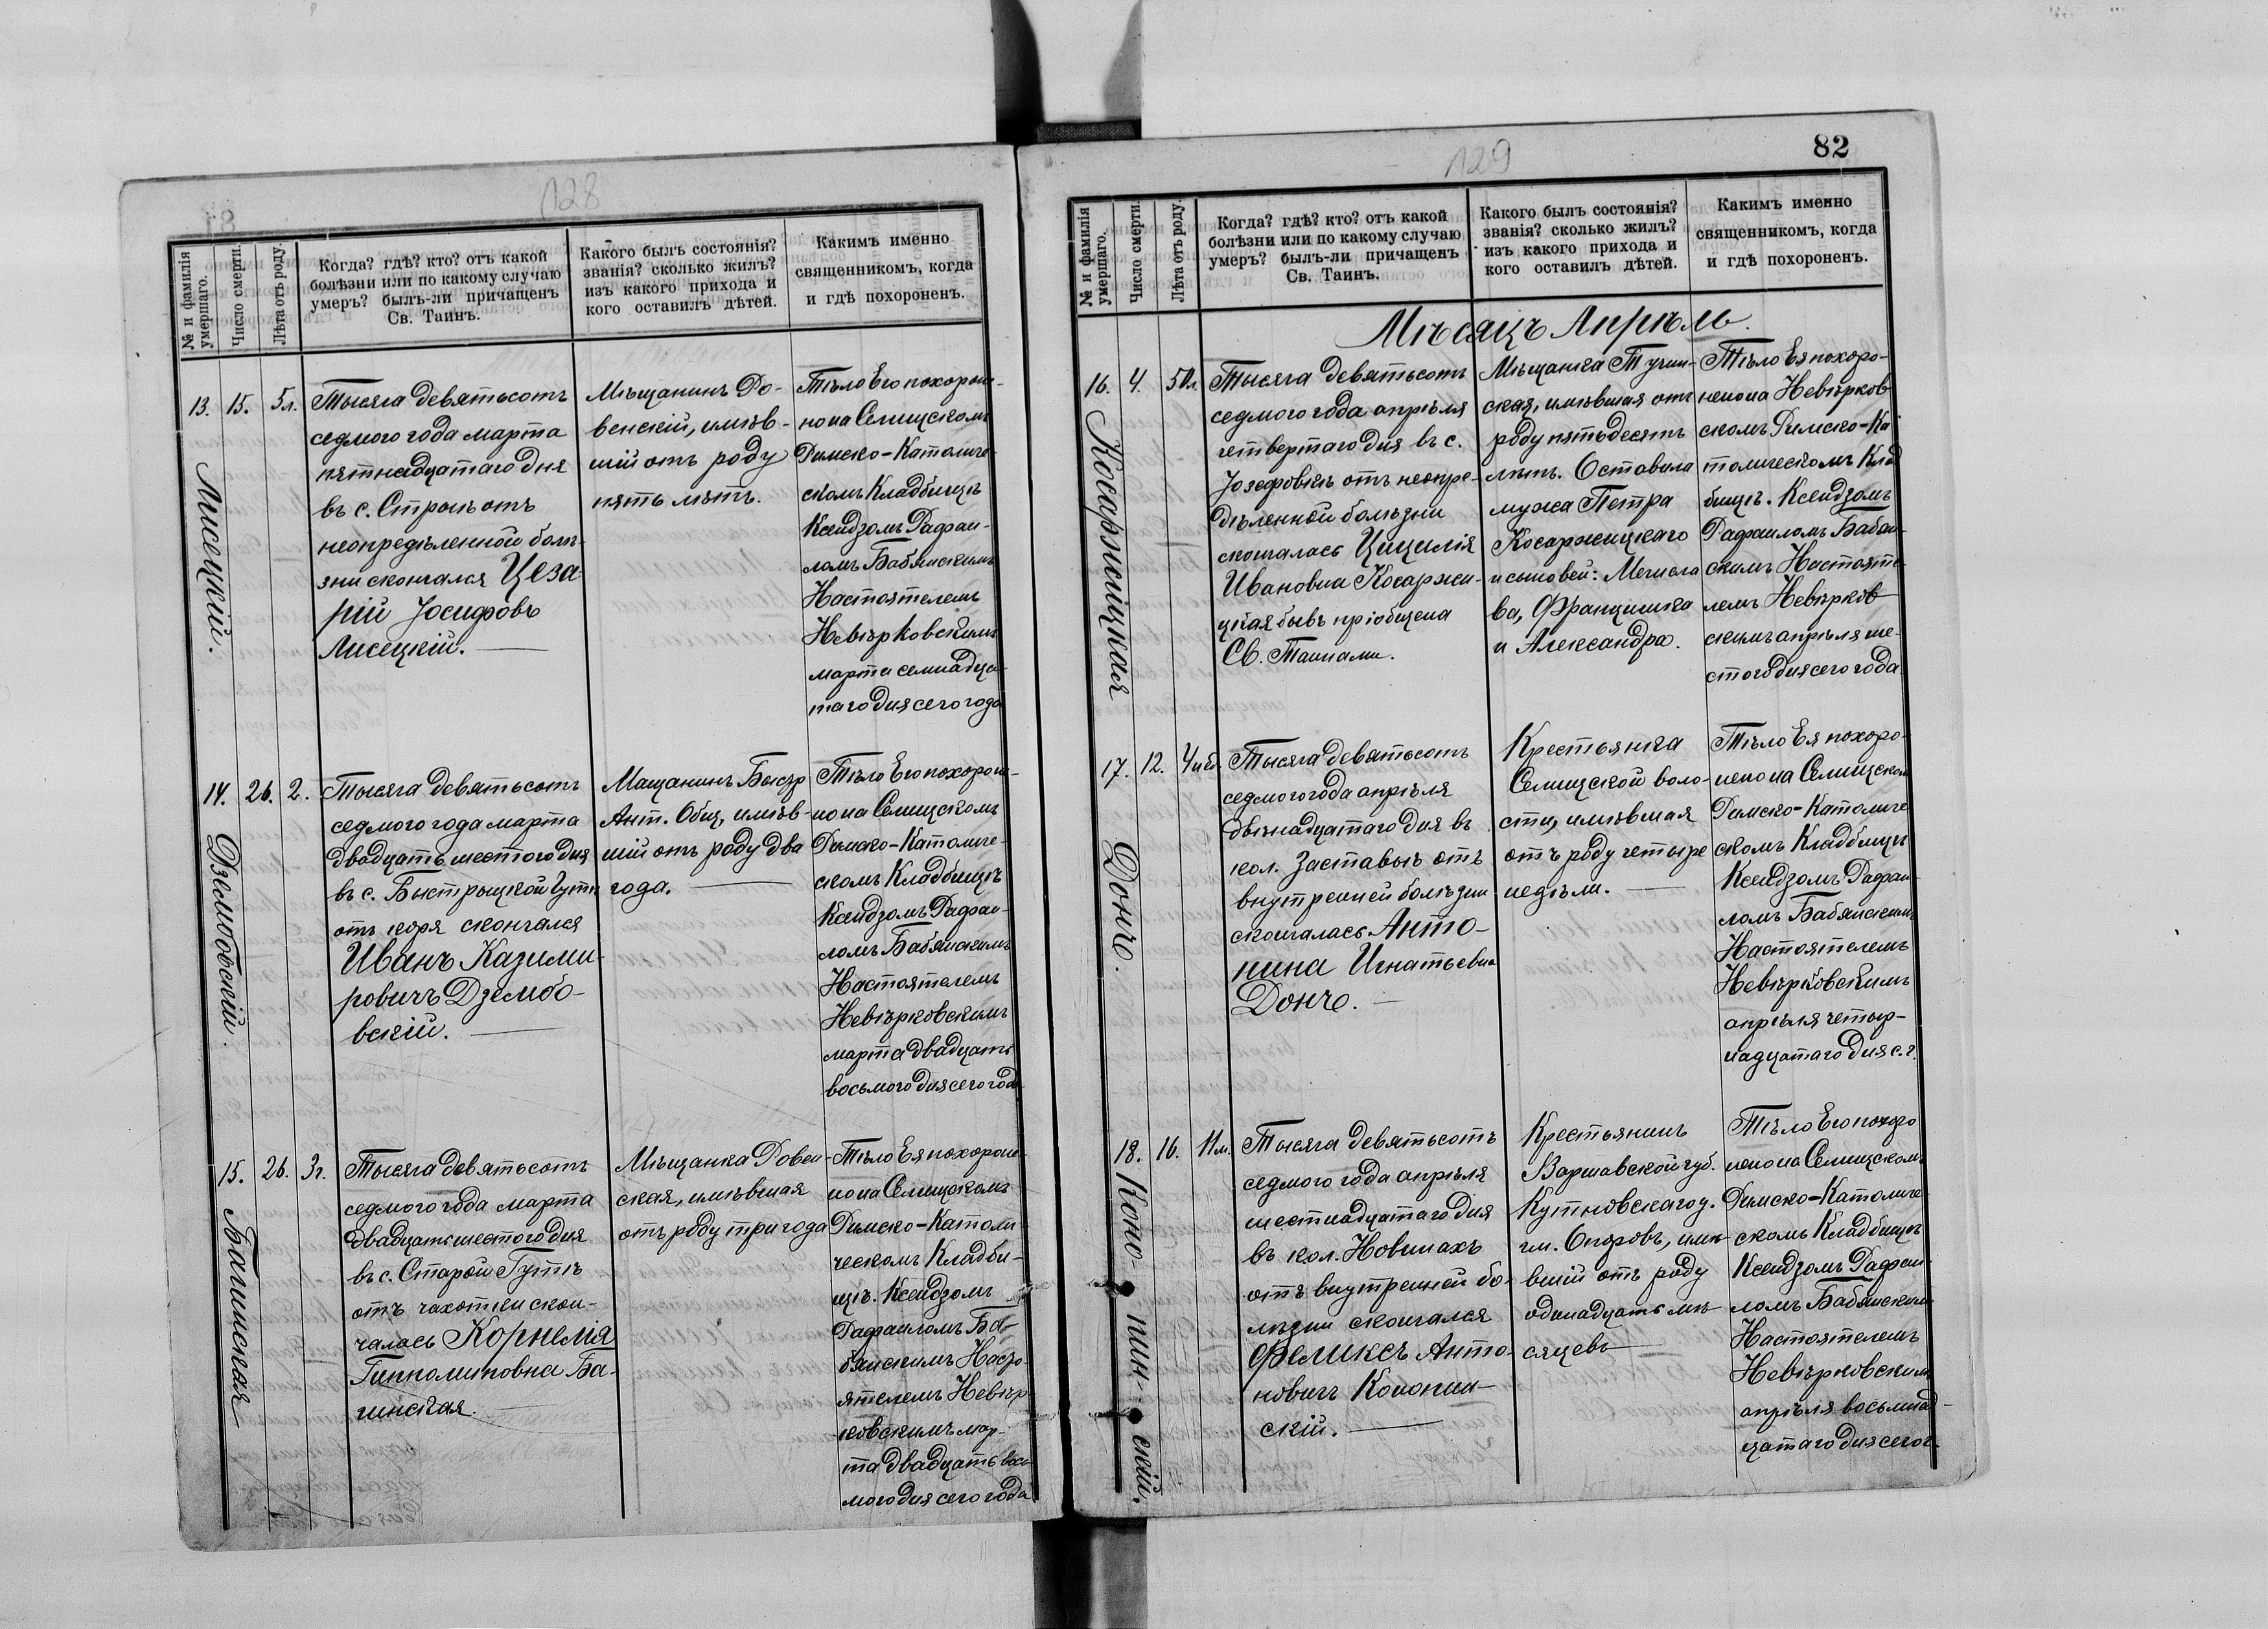 128
№ и фамилія умершаго.
Число смерти.
Лѣта отъ роду.
Когда? гдѣ? кто? отъ какой
болѣзни или по какому случаю
умеръ? былъ-ли причащенъ
Св. Таинъ.
Какого былъ состоянія?
званія? сколько жилъ?
изъ какого прихода и
кого оставилъ дѣтей.
Какимъ именно
священникомъ, когда
и гдѣ похороненъ.
13. 15. 5л.
Лисецкій.
Тысяча девятьсотъ
седмого года марта
пятнадцатаго дня
въ с. Строѣ отъ
неопредѣленной болѣ-
зни скончался Цеза-
рій Іосифовъ
Лисецкій.
Мѣщанинъ Ро-
венскій, имѣв-
шій отъ роду
пять лѣтъ.
Тѣло Его похороне-
но на Селищскомъ
Римско-Католиче-
скомъ Кладбищѣ
Ксендзомъ Рафаи-
ломъ Бабянскимъ
Настоятелемъ
Невѣрковскимъ
марта семнадца-
таго дня сего года
14. 26. 2.
Дзембовскій.
Тысяча девятьсотъ
седмого года марта
двадцать шестого дня
въ с. Быстрыцкой Гутѣ
отъ коря скончался
Иванъ Казими-
ровичъ Дзембо-
вскій.
Мащанинъ Быстр
Ант. Общ, имѣв-
шій отъ роду два
года.
Тѣло Его похороне-
но на Селищскомъ
Римско-Католиче-
скомъ Кладбищѣ
Ксендзомъ Рафаи-
ломъ Бабянскимъ
Настоятелемъ
Невѣрковскимъ
марта двадцать
восьмого дня сего года
15. 26. 3г.
Багинская
Тысяча девятьсотъ
седмого года марта
двадцать шестого дня
въ с. Старой Гутѣ
отъ чахотки скон-
чалась Корнелія
Гипполитовна Ба-
гинская.
Мѣщанка Ровен-
ская, имѣвшая
отъ роду три года
Тѣло Ея похороне-
но на Селищскомъ
Римско-Католи-
ческомъ Кладби-
щѣ. Ксендзомъ
Рафаиломъ Ба-
бянскимъ Насто-
ятелемъ Невѣр-
ковскимъ мар-
та двадцать вось-
мого дня сего года
129
82
№ и фамилія умершаго.
Число смерти.
Лѣта отъ роду.
Когда? гдѣ? кто? отъ какой
болѣзни или по какому случаю
умеръ? былъ-ли причащенъ
Св. Таинъ.
Какого былъ состоянія?
званія? сколько жилъ?
изъ какого прихода и
кого оставилъ дѣтей.
Какимъ именно
священникомъ, когда
и гдѣ похороненъ.
Мѣсяцъ Апрѣль.
16. 4. 50л.
Косаржицкая
Тысяча девятьсотъ
седмого года апрѣля
четвертаго дня въ с.
Іозефовкѣ отъ неопре-
дѣленной болѣзни
скончалась Цицилія
Ивановна Косаржи-
цкая бывъ пріобщена
Св. Тайнами.
Мѣщанка Тучин-
ская, имѣвшая отъ
роду пятьдесятъ
лѣтъ. Оставила
мужа Петра
Косаржицкаго
и сыновей: Мечисла
ва, Францишка
и Александра.
Тѣло Ея похоро-
нено на Невѣрков-
скомъ Римско-Ка
толическомъ Клад
бищѣ. Ксендзомъ
Рафаиломъ Бабян-
скимъ Настояте-
лемъ Невѣрков-
скимъ апрѣля ше-
стого дня сего года.
17. 12. 4 нед.
Донче.
Тысяча девятьсотъ
седмого года апрѣля
двѣнадцатаго дня въ
кол. Заставьѣ отъ
внутренней болѣзни
скончалась Анто-
нина Игнатьевна
Донче.
Крестьянка
Селищской воло-
сти, имѣвшая
отъ роду четыре
недѣли.
Тѣло Ея похоро-
нено на Селищском
Римско-Католиче
скомъ Кладбищѣ
Ксендзомъ Рафаи-
ломъ Бабянскимъ
Настоятелемъ
Невѣрковскимъ
апрѣля четыр-
надцатаго дня с.г.
18. 16. 11м.
Коно-пин-скій.
Тысяча девятьсотъ
седмого года апрѣля
шестнадцатаго дня
въ кол. Новинахъ
отъ внутренней бо-
лѣзни скончался
Феликсъ Анто-
новичъ Конопин-
скій.
Крестьянинъ
Варшавской губ.
Кутновскаго у.
гм. Опоровъ, имѣ-
вшій отъ роду
одинадцать мѣ-
сяцевъ
Тѣло Его похоро
нено на Селищскомъ
Римско-Католиче-
скомъ Кладбищѣ
Ксендзомъ Рафаи-
ломъ Бабянским
Настоятелемъ
Невѣрковским
апрѣля восьмнад-
цатаго дня сего г.